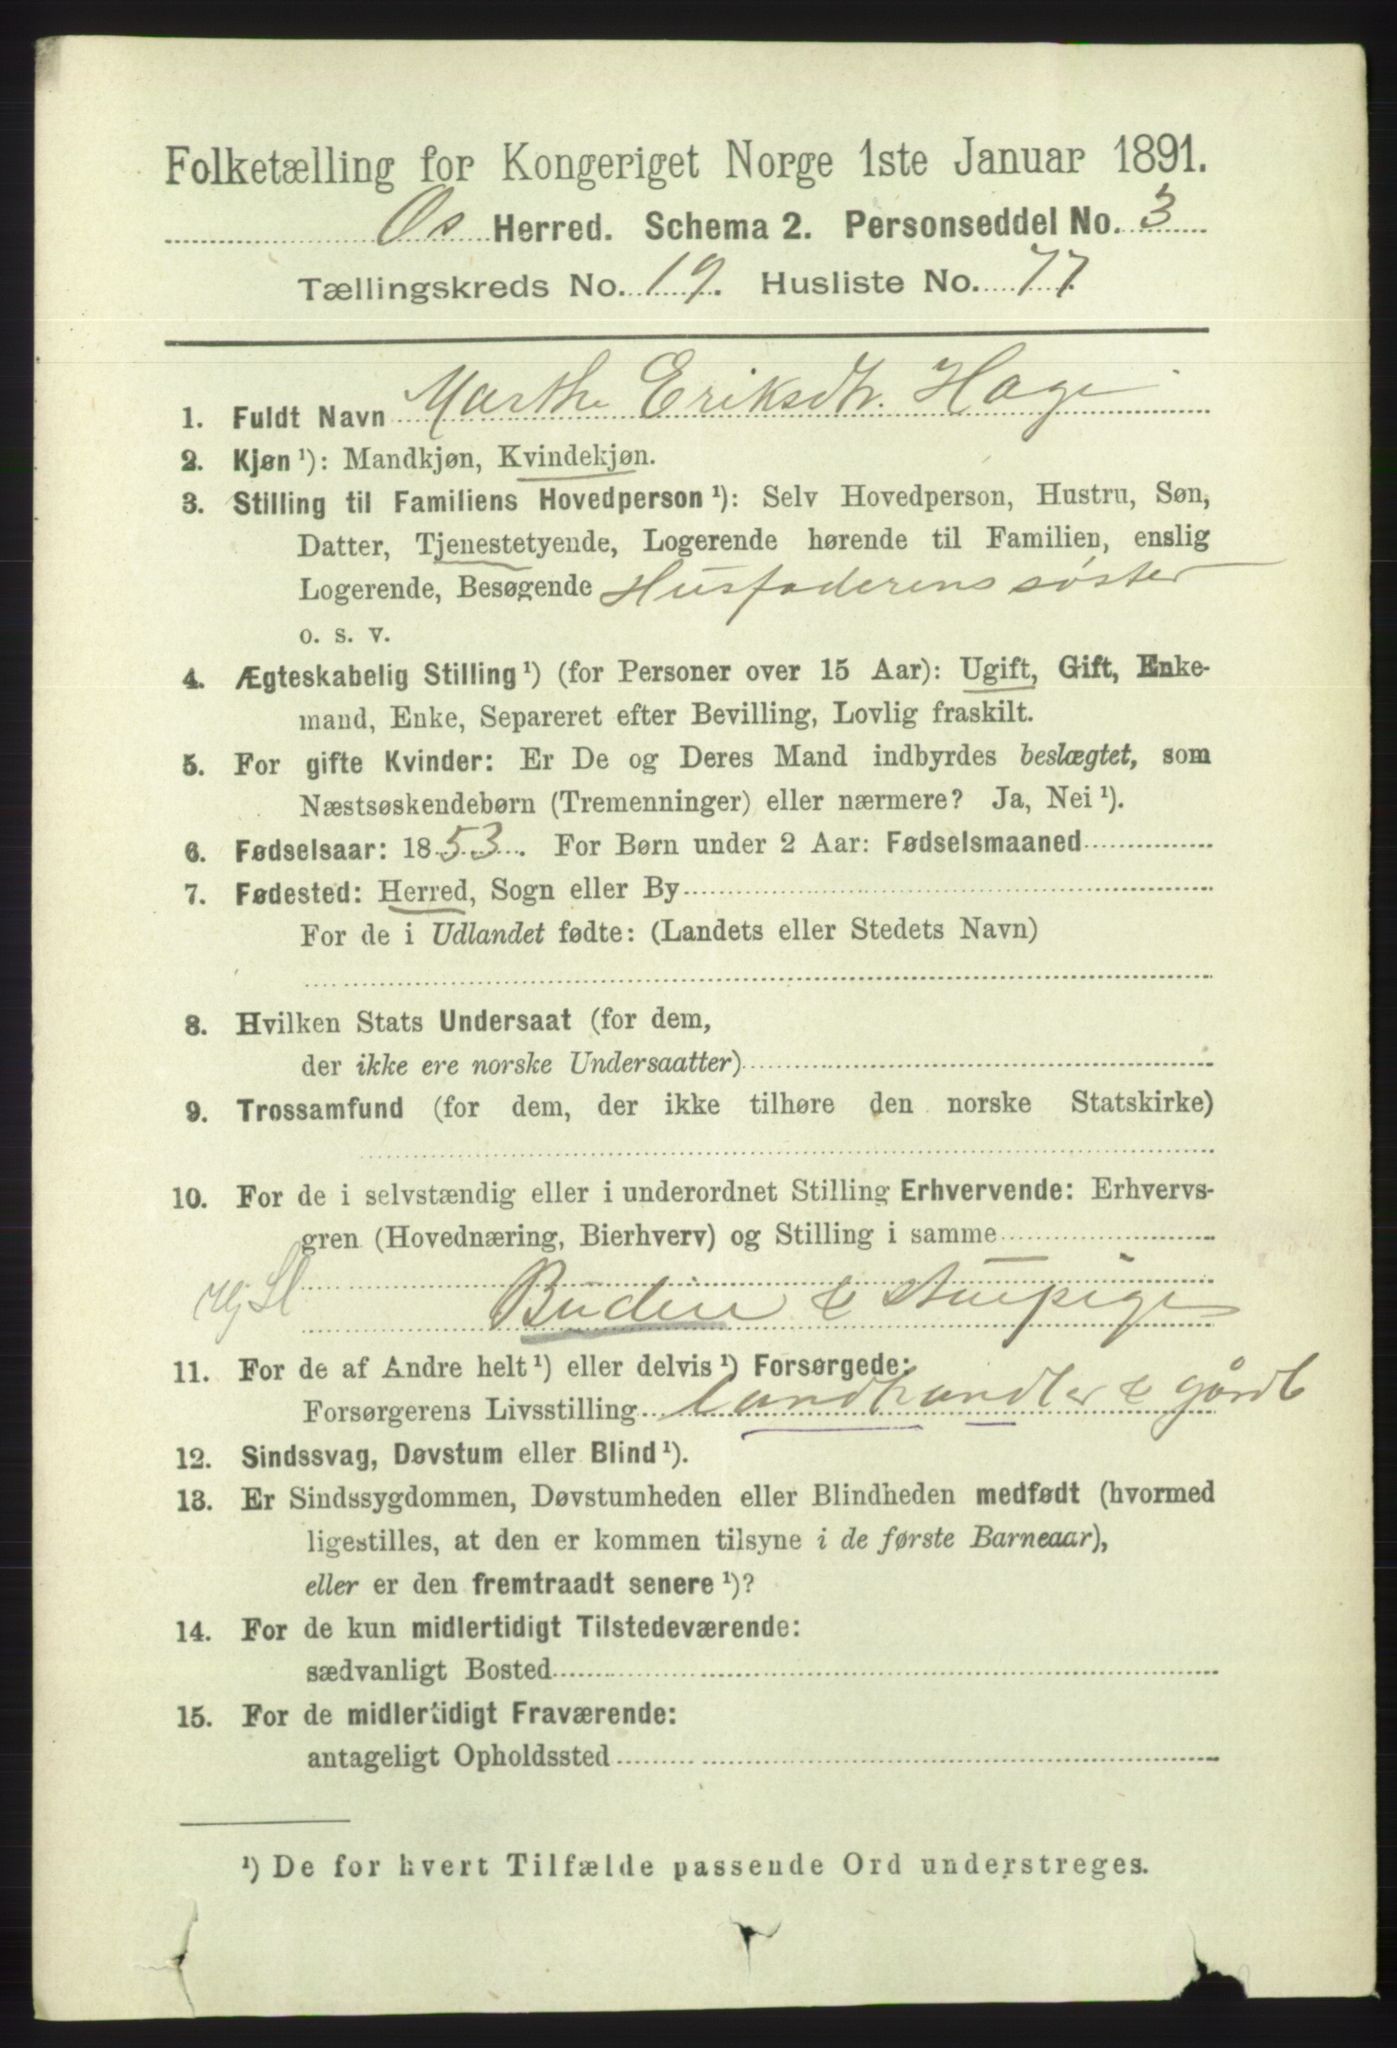 Folketælling for Kongeriget Norge 1ste Januar 1891.
Os Herred. Schema 2. Personseddel No. 3
Tællingskreds No. 19. Husliste No. 77.
1. Fuldt Navn Marthe Eriksdtr. Hage
2. Kjøn ¹): Mandkjøn, Kvindekjøn.
3. Stilling til Familiens Hovedperson ¹): Selv Hovedperson, Hustru, Søn,
Datter, Tjenestetyende, Logerende hørende til Familien, enslig
Logerende, Besøgende Husfaderens søster
o. s. v.
4. Ægteskabelig Stilling ¹) (for Personer over 15 Aar): Ugift, Gift, Enke-
mand, Enke, Separeret efter Bevilling, Lovlig fraskilt.
5. For gifte Kvinder: Er De og Deres Mand indbyrdes beslægtet, som
Næstsøskendebørn (Tremenninger) eller nærmere? Ja, Nei ¹).
6. Fødselsaar: 1853. For Børn under 2 Aar: Fødselsmaaned
7. Fødested: Herred, Sogn eller By
For de i Udlandet fødte: (Landets eller Stedets Navn)
8. Hvilken Stats Undersaat (for dem,
der ikke ere norske Undersaatter)
9. Trossamfund (for dem, der ikke tilhøre den norske Statskirke)
10. For de i selvstændig eller i underordnet Stilling Erhvervende: Erhvervs-
gren (Hovednæring, Bierhverv) og Stilling i samme
Budeie & Stuepige
11. For de af Andre helt ¹) eller delvis ¹) Forsørgede:
Forsørgerens Livsstilling Landhandler & gårdb
12. Sindssvag, Døvstum eller Blind ¹).
13. Er Sindssygdommen, Døvstumheden eller Blindheden medfødt (hvormed
ligestilles, at den er kommen tilsyne i de første Barneaar),
eller er den fremtraadt senere ¹)?
14. For de kun midlertidigt Tilstedeværende:
sædvanligt Bosted
15. For de midlertidigt Fraværende:
antageligt Opholdssted
¹) De for hvert Tilfælde passende Ord understreges.